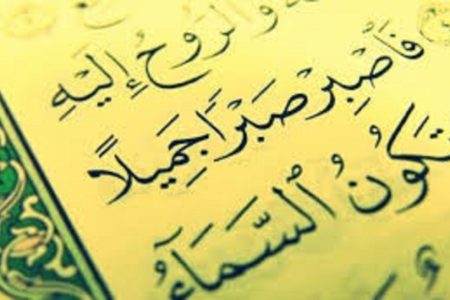 والروح إليه
فَٱصْبِرْ صَبْرًا جَمِيلًا
تَكُونُ ٱلسَّمَآءُ